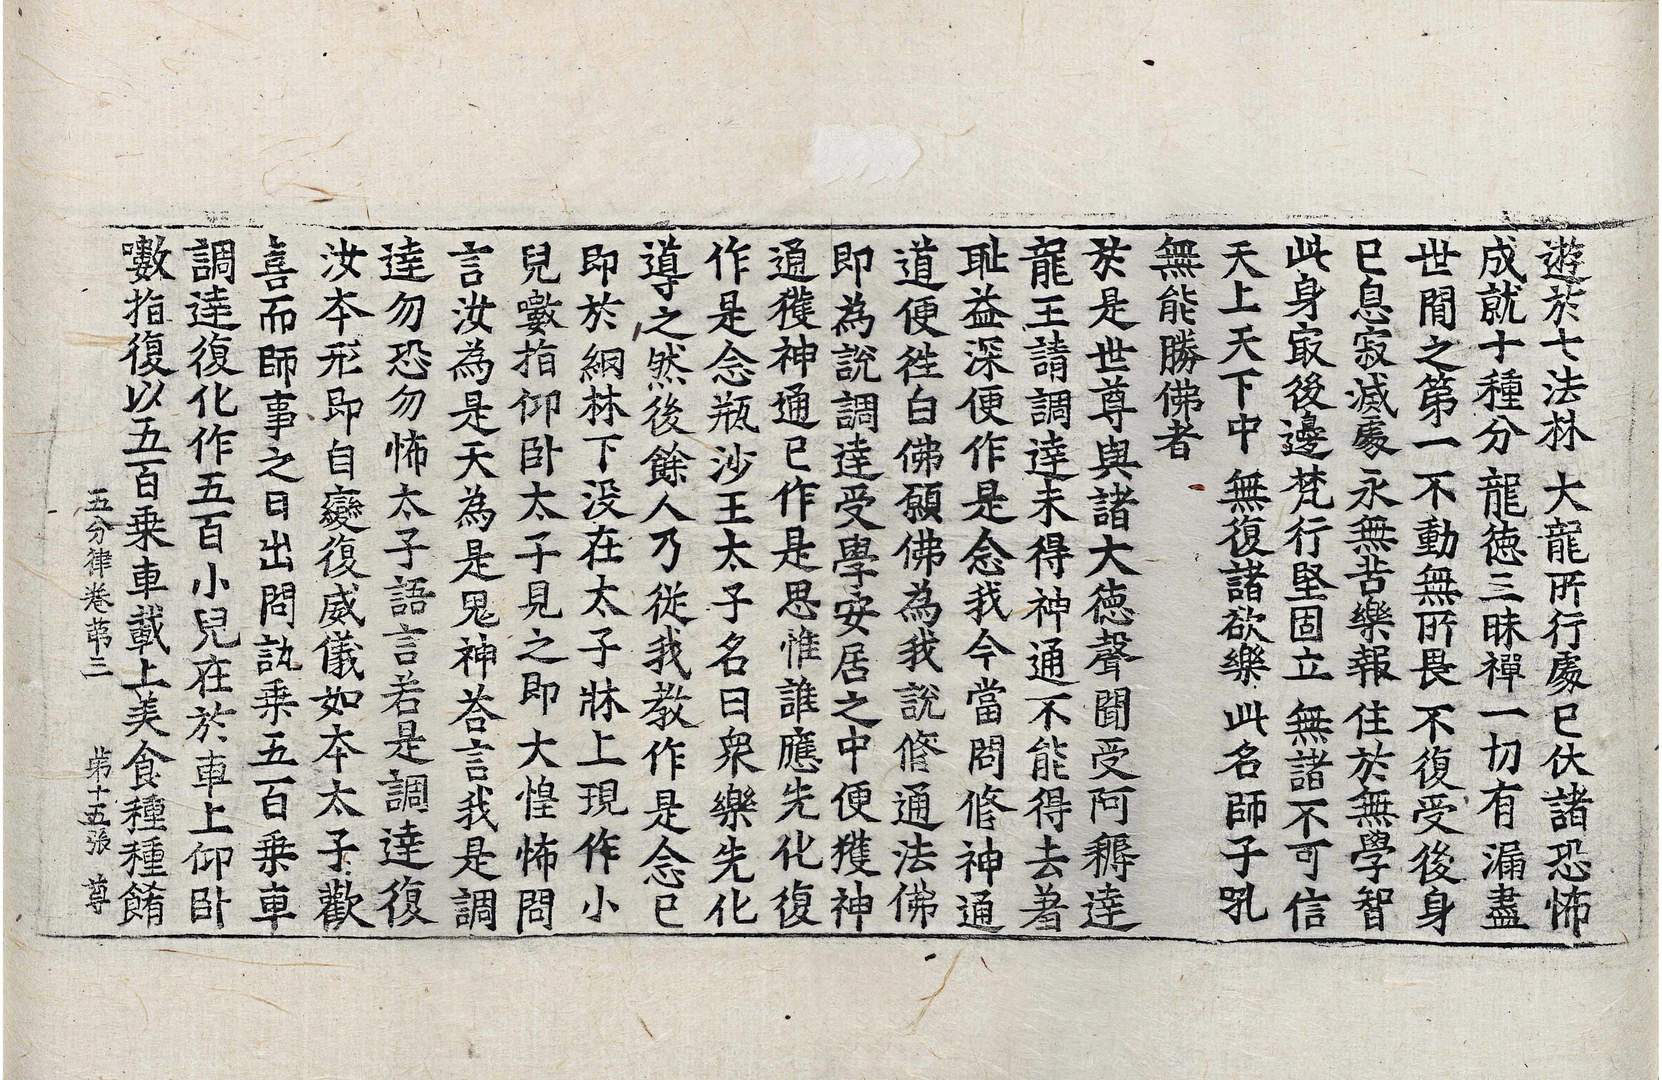 遊於七法林 大龍所行處已伏諸恐怖
成就十種分 龍德三昧禪一切有漏盡
世間之第一 不動無所畏 不復受後身
已息寂滅處 永無苦樂報 住於無學智
此身寂後邊 梵行堅固立 無諸不可信
天上天下中 無復諸欲樂 此名師子吼
無能勝佛者
於是世尊與諸大德聲聞受阿耨達
龍王請調達未得神通不能得去羞
耻益深便作是念我今當問脩神通
道便徃白佛願佛為我說脩通法佛
即為說調達受學安居之中便獲神
通獲神通已作是思惟誰應先化復
作是念瓶沙王太子名曰衆樂先化
導之然後餘人乃從我教作是念已
即於網林下没在太子牀上現作小
兒㘌指仰卧太子見之即大惶怖問
言汝為是天為是鬼神荅言我是調
達勿恐勿怖太子語言若是調達復
汝本形即自變復威儀如本太子歡
喜而師事之日出問訊乗五百乗車
調達復化作五百小兒在於車上仰卧
㘌指復以五百乗車載上美食種種餚
五分律卷苐三 苐十五張 尊